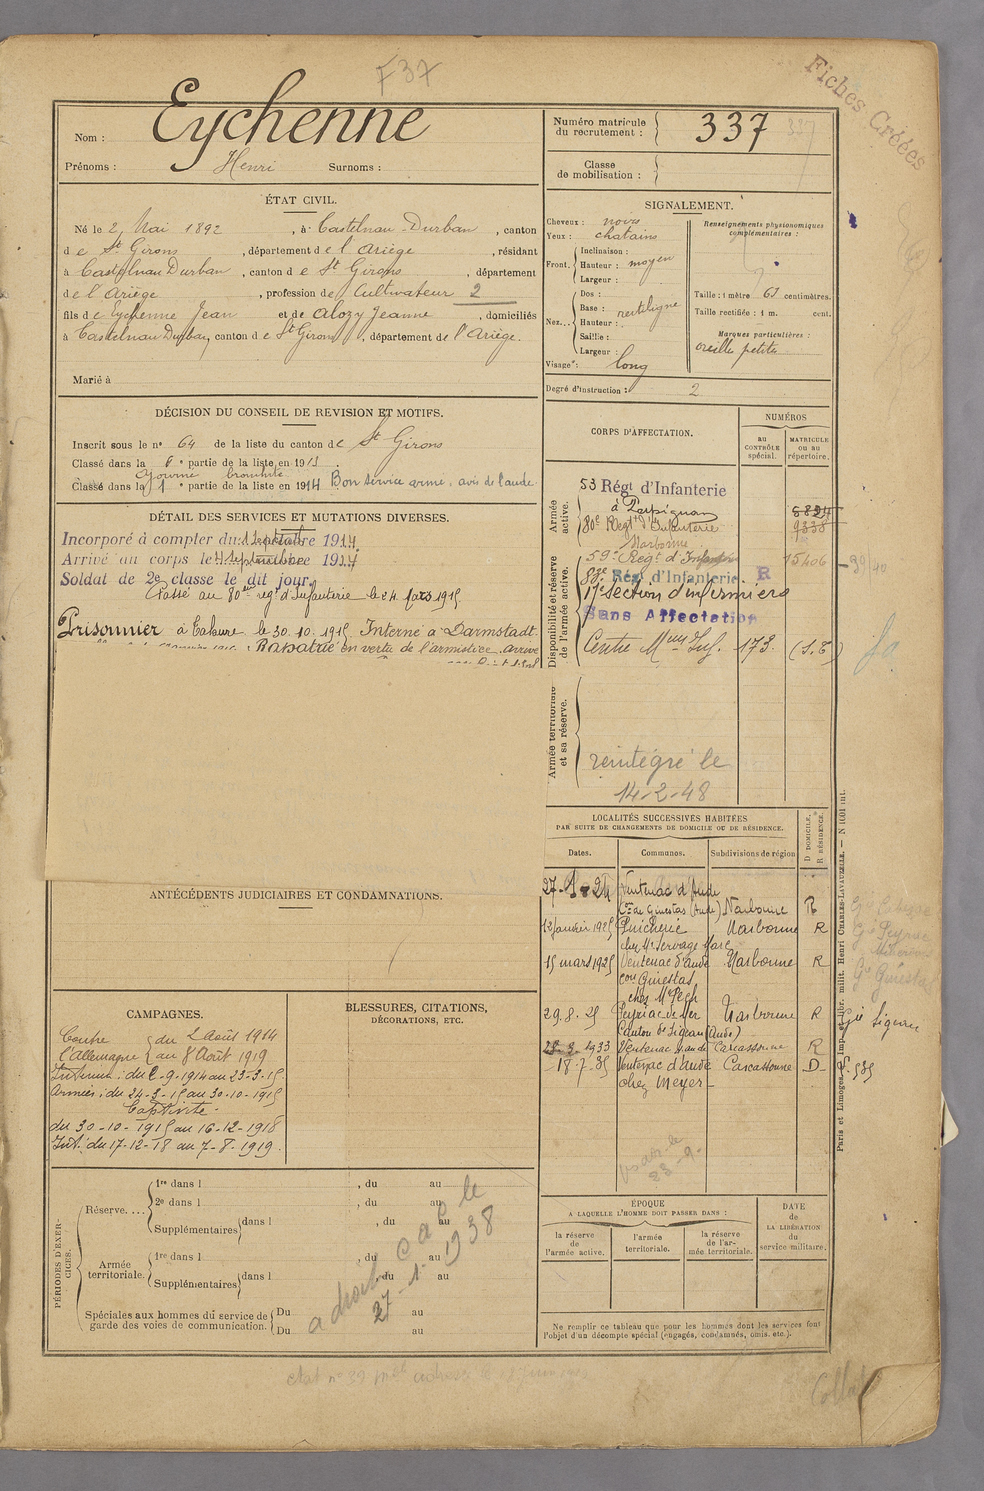 F37
Fiches Créées
Nom : Eychenne
Prénoms : Henri Surnoms :
Numéro matricule du recrutement : 337
Classe de mobilisation :
ÉTAT CIVIL.
Né le 2 Mai 1892, à Castelnau-Durban, canton
de St Girons, département de l'Ariège, résidant
à Castelnau Durban, canton de St Girons, département
de l'Ariège, profession de Cultivateur 2
fils de Eychenne Jean et de Alozy Jeanne, domiciliés
à Castelnau Durban, canton de St Girons, département de l'Ariège.
Marié à
SIGNALEMENT.
Cheveux : noirs
Yeux : chatains
Front. Inclinaison :
Hauteur : moyen
Largeur :
Nez... Dos :
Base : rectiligne
Hauteur :
Saillie :
Largeur :
Visage : long
Renseignements physionomiques complémentaires :
Taille : 1 mètre 61 centimètres.
Taille rectifiée : 1 m. cent.
Marques particulières :
oreille petite
Degré d'instruction : 2
DÉCISION DU CONSEIL DE REVISION ET MOTIFS.
Inscrit sous le n° 64 de la liste du canton de St Girons
Classé dans la 6e partie de la liste en 1913.
Ajourné bronchite
Classé dans la 1e partie de la liste en 1914 Bon service armé, avis de l'aude
DÉTAIL DES SERVICES ET MUTATIONS DIVERSES.
Incorporé à compter du 1914.
Arrivé au corps le septembre 1914
Soldat de 2e classe le dit jour.
Classé au 80eme régt d'Infanterie le 24 Mars 1915
Prisonnier à Tahure le 30.10.1915 Interné à Darmstadt
Rapatrié en vertu de l'armistice. arrivé
CORPS D'AFFECTATION.
NUMÉROS
au CONTRÔLE spécial.
MATRICULE OU AU répertoire.
Armée active.
53 Régt d'Infanterie
à Perpignan
80e Régt d'Infanterie 9338
Narbonne
Disponibilité et réserve de l'armée active.
59e Régt d'Infanterie 15406
83e Rég. d'Infanterie. R
17e Section d'infirmiers
Sans Affectation
Centre Meur Inf. 173. (S.T)
Armée territoriale et sa réserve.
réintégré le
14-2-48
LOCALITÉS SUCCESSIVES HABITÉES
PAR SUITE DE CHANGEMENTS DE DOMICILE OU DE RÉSIDENCE.
Dates. Communes. Subdivisions de région D DOMICILE, R RÉSIDENCE.
Ventenac d'Aude
Con de Ginestas (Aude) Narbonne R
12 janvier 1925 Narbonne R
15 mars 1925 Ventenac d'Aude Narbonne R
con Ginestas
chez Mr Pech
29.8.25 Peyriac de Mer Narbonne R
Canton de Sigean (Aude)
1933 Ventenac d'Aude Carcassonne R
18-7-35 Ventenac d'Aude Carcassonne D
chez Meyer
Gie Sigean
Paris et Limoges. Imp. et Libr. milit. Henri CHARLES-LAVAUZELLE.
ANTÉCÉDENTS JUDICIAIRES ET CONDAMNATIONS.
CAMPAGNES.
Contre l'Allemagne du 2 Août 1914
au 8 Août 1919
Intérieur : du 2-9-1914 au 23-3-15
Armées : du 24-3-15 au 30-10-1915
Captivité.
du 30-10-1915 au 16-12-1918
Int. du 17-12-18 au 7-8-1919
BLESSURES, CITATIONS,
DÉCORATIONS, ETC.
PÉRIODES D'EXERCICES.
Réserve.... 1re dans l , du au
2e dans l , du au
Supplémentaires dans l , du au
Armée territoriale. 1re dans l , du au
Supplémentaires dans l , du au
Spéciales aux hommes du service de garde des voies de communication. Du au
Du au
a droit C a C le
27-1-1938
ÉPOQUE
A LAQUELLE L'HOMME DOIT PASSER DANS :
la réserve de l'armée active.
l'armée territoriale.
la réserve de l'armée territoriale.
DATE de LA LIBÉRATION du service militaire.
Ne remplir ce tableau que pour les hommes dont les services font
l'objet d'un décompte spécial (engagés, condamnés, omis, etc.).